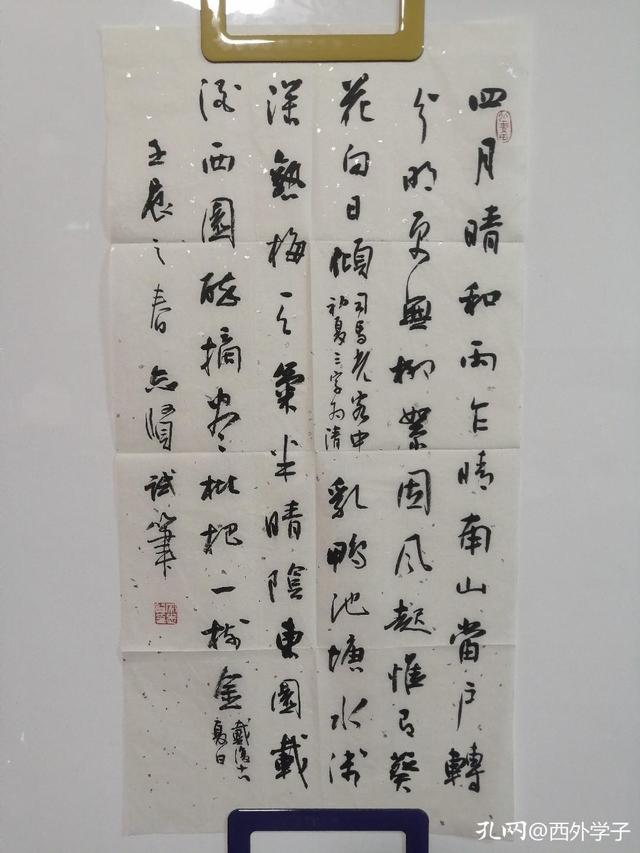 四月晴和雨乍晴南山當户轉
分明更無柳絮因風起惟有葵
花向日傾
司馬光客中
初夏三字为清
乳鴨池塘水浅
深熟梅天氣半晴陰東園載
酒西園醉摘盡枇杷一樹金
戴復古
夏日
壬辰之春试筆
孔网@西外学子